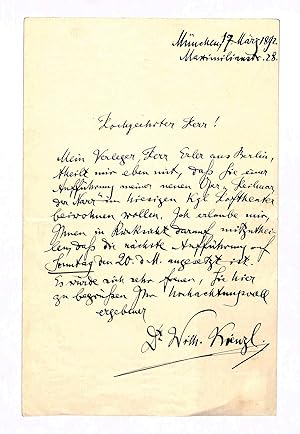 München, 17 März 1892.
Maximilianstr. 28.
Hochgeehrter Herr!
Mein Verleger, Herr Erler aus Berlin,
theilt mir eben mit, daß Sie einer
Aufführung meiner neuen Oper „Heilmar
der Narr" im hiesigen Kgl. Hoftheater
beiwohnen wollen. Ich erlaube mir,
Ihnen in Rücksicht darauf mitzuthei-
len, daß die nächste Aufführung auf
Sonntag den 20. d. M. angesetzt ist.
Es würde mich sehr freuen, Sie hier
zu begrüßen. Ihr hochachtungsvoll
ergebener
Dr. Wilh. Kienzl.